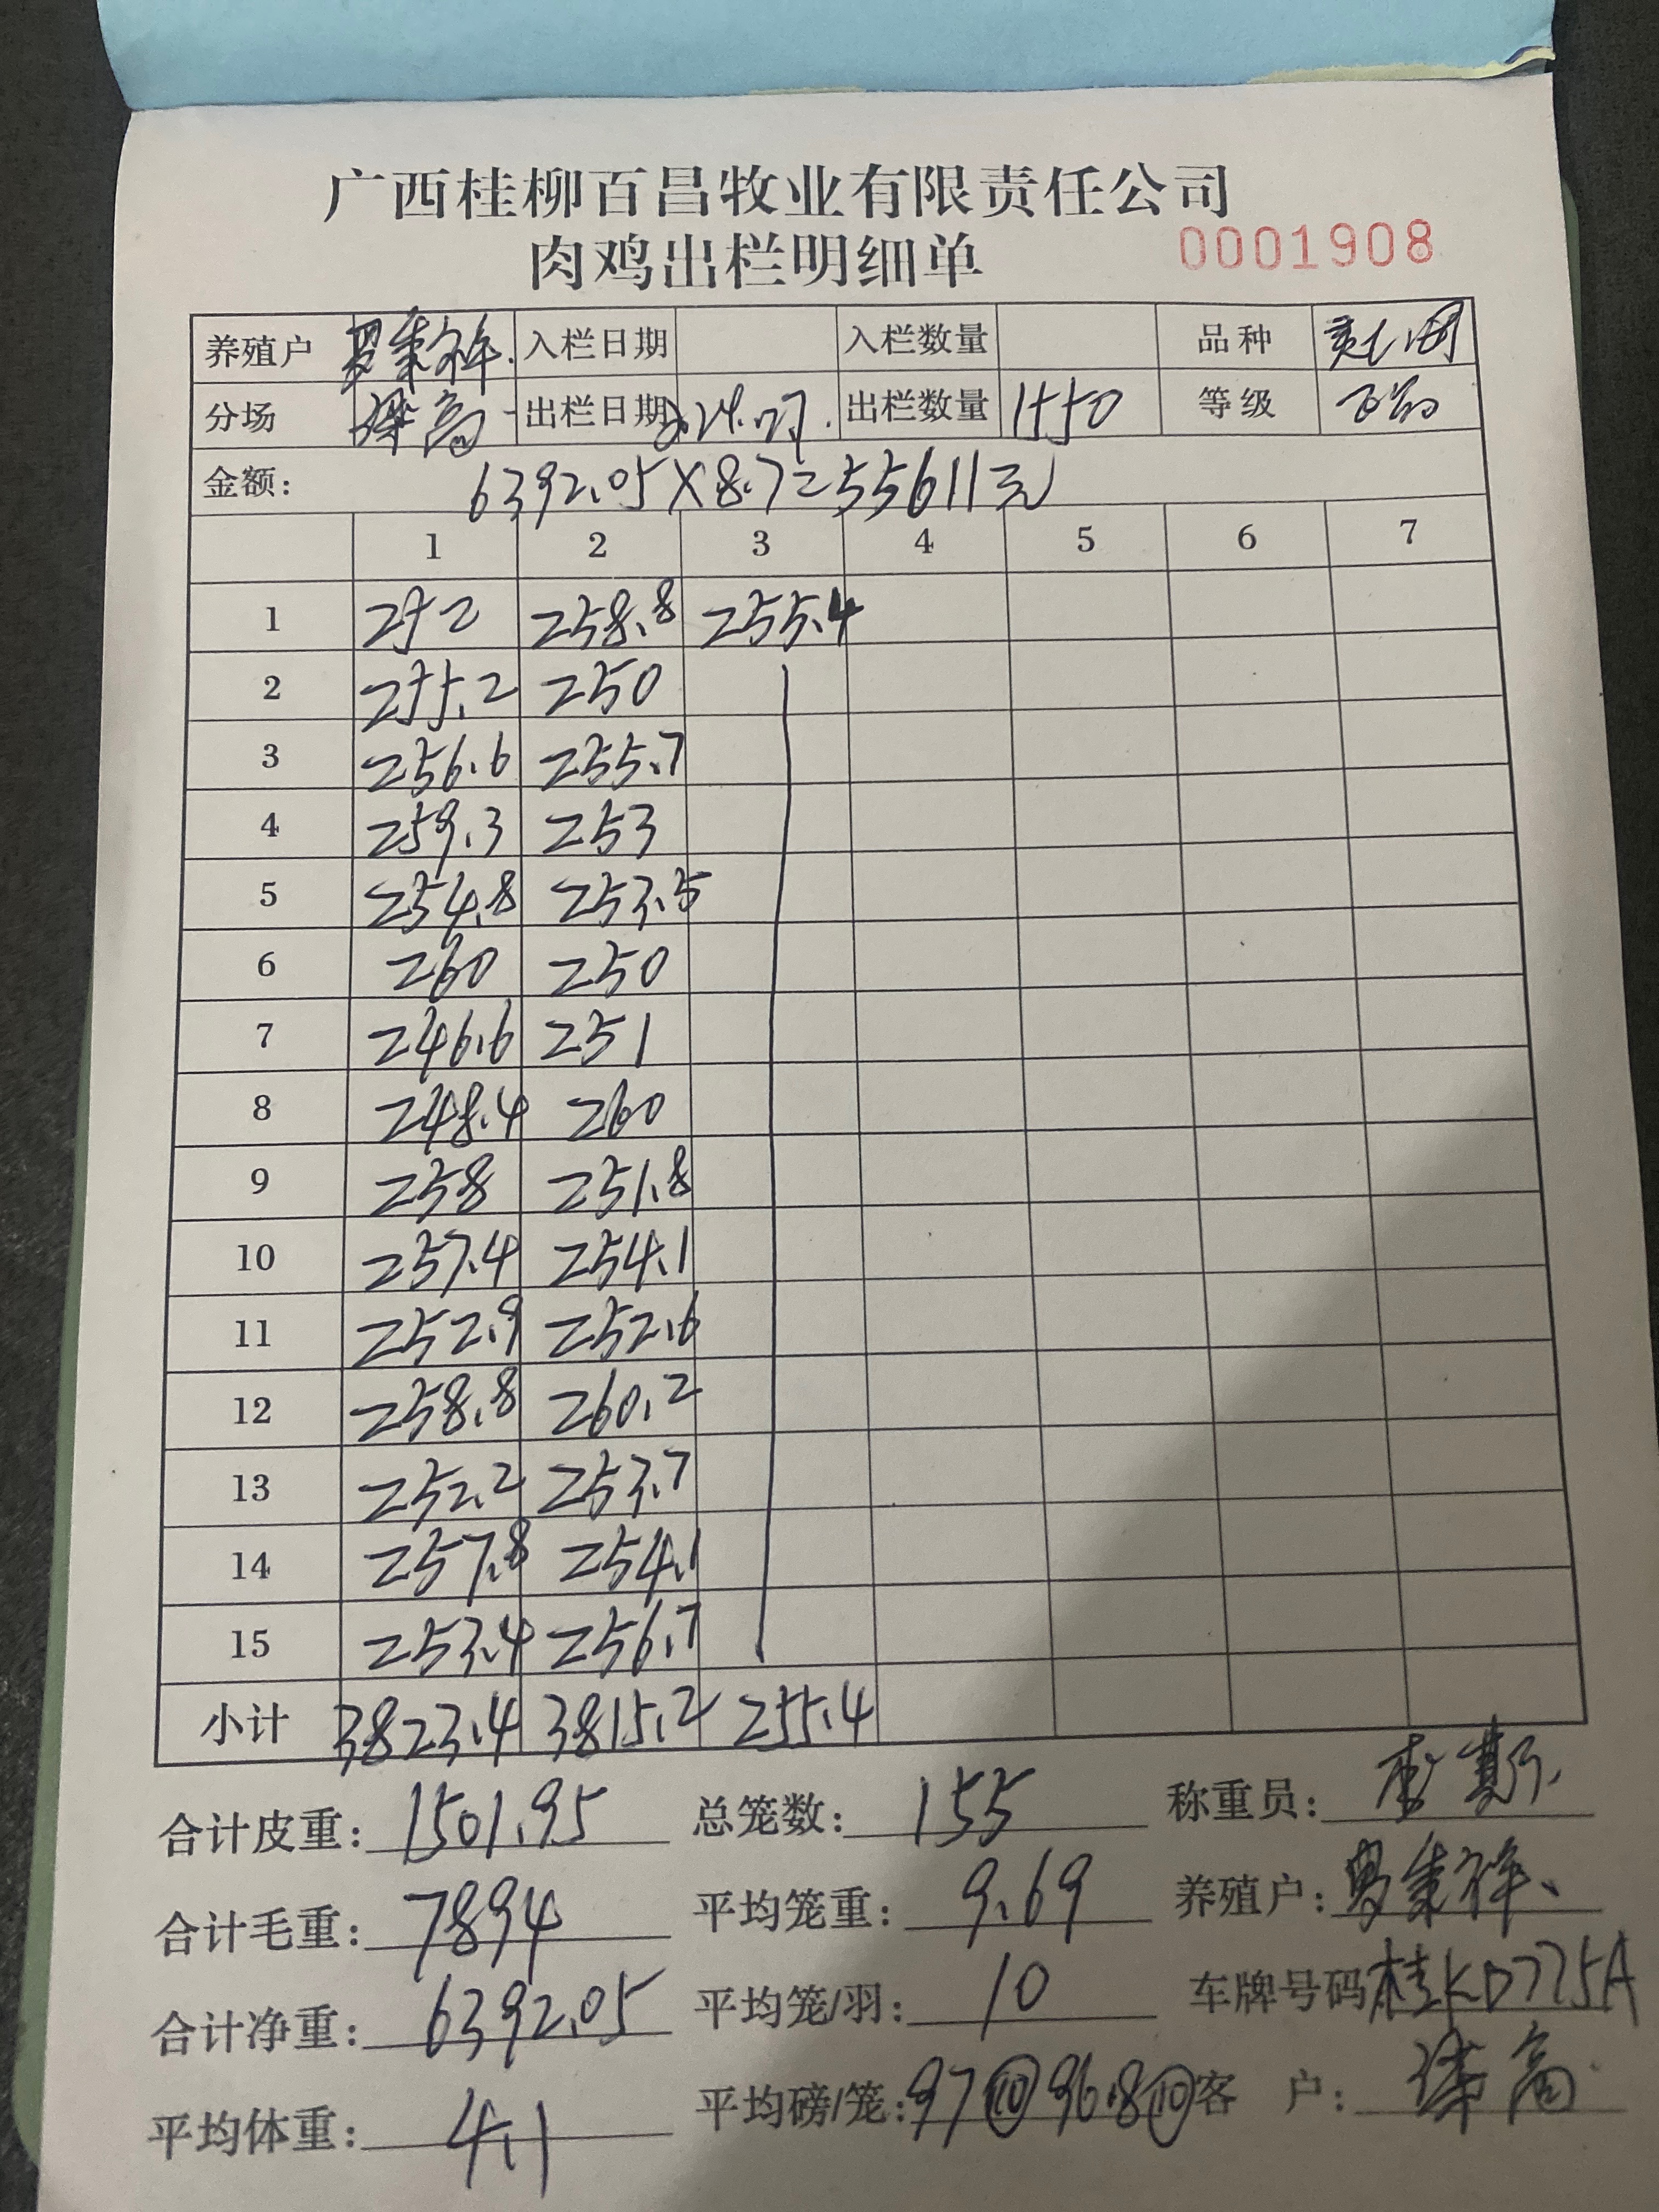 广西桂柳百昌牧业有限责任公司
肉鸡出栏明细单 0001908
养殖户 罗集祥. 入栏日期 入栏数量 品种
分场 高 出栏日期 出栏数量 1550 等级
金额: 6392.05×8.7=55611元
1 2 3 4 5 6 7
1 252 258.8 255.4
2 255.2 250
3 256.6 255.7
4 259.3 253
5 254.8 253.5
6 260 250
7 246.6 251
8 248.4 260
9 258 251.8
10 257.4 254.1
11 252.9 252.6
12 258.8 260.2
13 252.2 253.7
14 257.8 254.1
15 253.4 256.7
小计 3823.4 3815.2 255.4
合计皮重: 1501.95 总笼数: 155 称重员: 斯
合计毛重: 7894 平均笼重: 9.69 养殖户: 罗集祥
合计净重: 6392.05 平均笼/羽: 10 车牌号码 桂KD775A
平均体重: 4.1 平均磅/笼: 97⑩ 96.8⑩ 客 户: 高